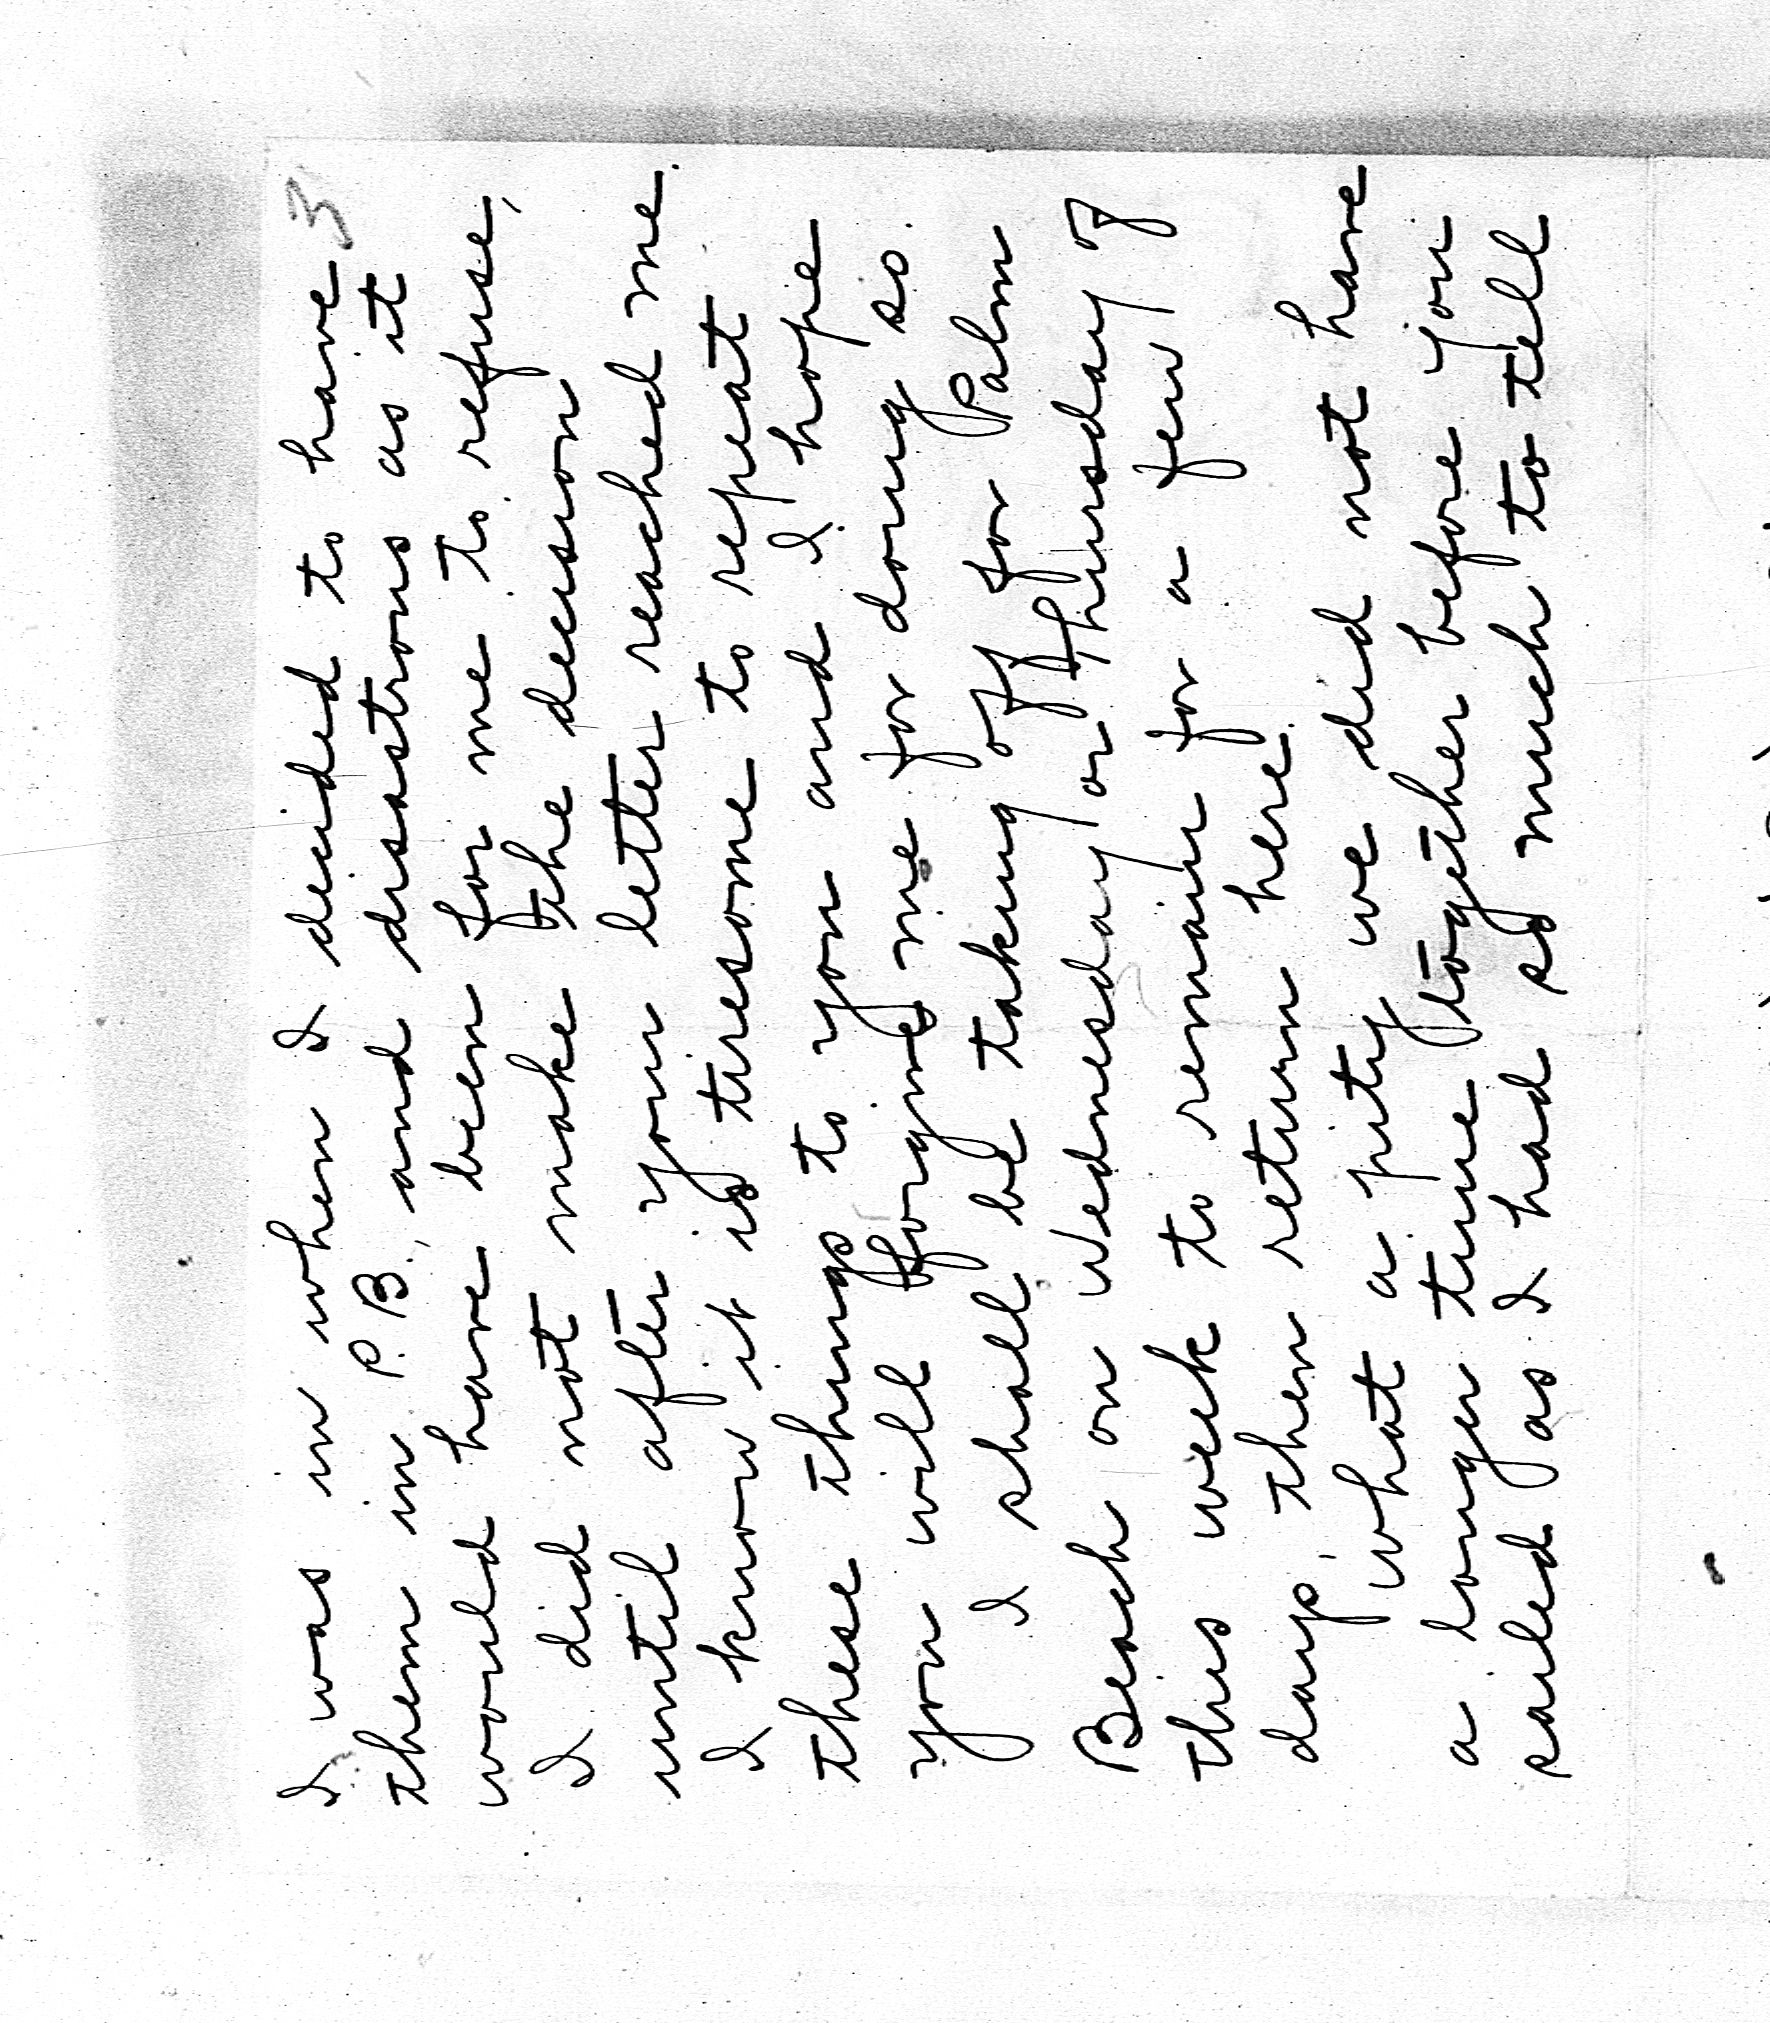 3
I was in when I decided to have
them in P. B., and disastrous as it
would have been for me to refuse,
I did not make the decision
until after your letter reached me.
I know it is tiresome to repeat
these things to you and I hope
you will forgive me for doing so.
I shall be taking off for Palm
Beach on Wednesday or Thursday of
this week to remain for a few
days, then return here.
What a pity we did not have
a longer time together before you
sailed as I had so much to tell